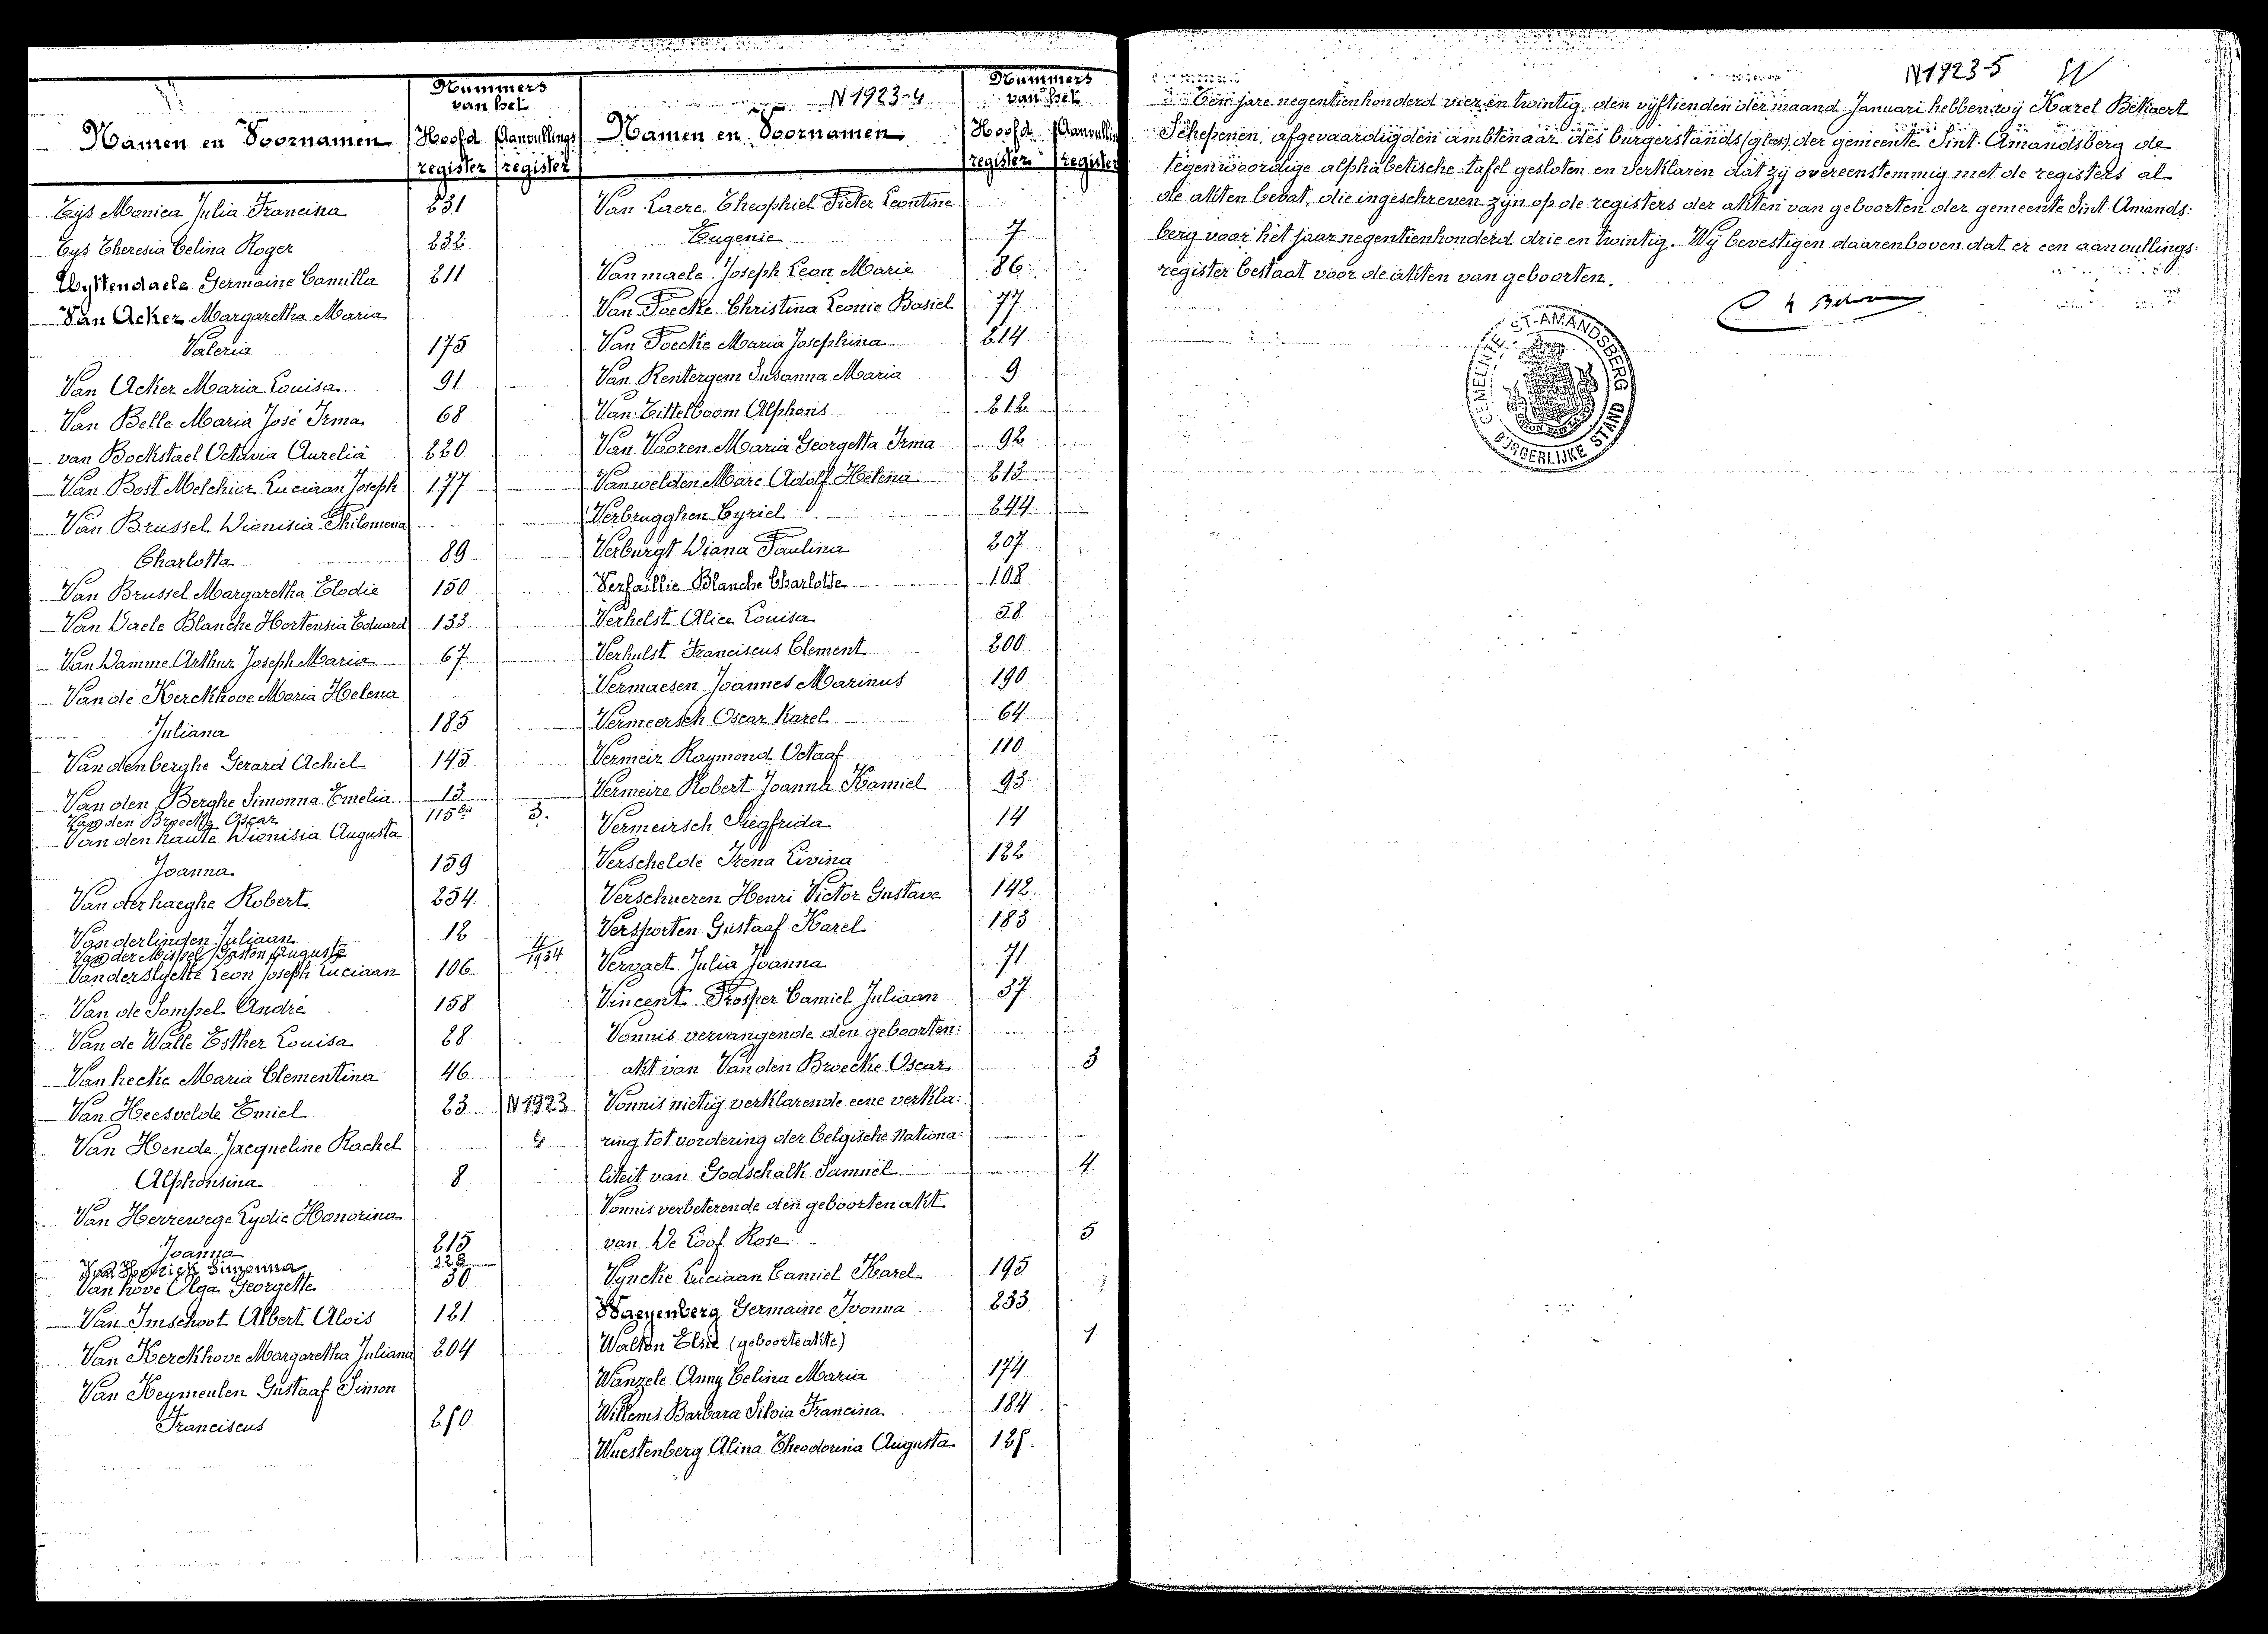 Nummers
van het
Namen en Voornamen Hoofd Aanvullings
register register
Tys Monica Julia Francina 231
Tys Theresia Celina Roger 232
Uyttendaele Germaine Camilla 211
Van Acker Margaretha Maria
Valeria 175
Van Acker Maria Louisa 91
Van Belle Maria José Irma 68
van Bockstael Octavia Aurelia 220
Van Bost Melchior Luciaan Joseph 177
Van Brussel Dionisia Philomena
Charlotta 89
Van Brussel Margaretha Elodie 150
Van Daele Blanche Hortensia Eduard 133
Van Damme Arthur Joseph Maria 67
Van de Kerckhove Maria Helena
Juliana 185
Vandenberghe Gerard Achiel 145
Van den Berghe Simonna Emelia 13
Van den Broecke Oscar 115bis 3.
Van den haute Dionisia Augusta
Joanna 159
Van der haeghe Robert 254
Van der linden Juliaan 12
Van der Missel Gaston Auguste 4/1934
Vanderslycke Leon Joseph Luciaan 106
Van de Sompel André 158
Van de Walle Esther Louisa 28
Van hecke Maria Clementina 46
Van Heesvelde Emiel 23 N 1923
Van Hende Jacqueline Rachel 4
Alphonsina 8
Van Herrewege Lydie Honorina
Joanna 215
Simonna 128
Van hove Olga Georgette 50
Van Imschoot Albert Alois 121
Van Kerckhove Margaretha Juliana 204
Van Keymeulen Gustaaf Simon
Franciscus 250
N 1923-4
Nummers
van het
Namen en Voornamen Hoofd Aanvullin
register register
Van Laere Theophiel Pieter Leontine
Eugenie 7
Vanmaele Joseph Leon Marie 86
Van Poecke Christina Leonie Basiel 77
Van Poecke Maria Josephina 214
Van Rentergem Susanna Maria 9
Van Tittelboom Alphons 212
Van Vooren Maria Georgetta Irma 92
Vanwelden Marc Adolf Helena 213
Verbrugghen Cyriel 244
Verburgt Diana Paulina 207
Verfaillie Blanche Charlotte 108
Verhelst Alice Louisa 58
Verhulst Franciscus Clement 200
Vermaesen Joannes Marinus 190
Vermeersch Oscar Karel 64
Vermeir Raymond Octaaf 110
Vermeire Robert Joanna Kamiel 93
Vermeirsch Siegfrida 14
Verschelde Irena Livina 122
Verschueren Henri Victor Gustave 142
Versporten Gustaaf Karel 183
Vervaet Julia Joanna 71
Vincent Prosper Camiel Juliaan 37
Vonnis vervangende den geboorten:
akt van Van den Broecke Oscar 3
Vonnis nietig verklarende eene verkla:
ring tot vordering der belgische nationa:
liteit van Godschalk Samuël 4
Vonnis verbeterende den geboorten akt
van De Loof Rose 5
Vyncke Luciaan Camiel Karel 195
Waeyenberg Germaine Ivonna 233
Walton Elsie (geboorteakte) 1
Wanzele Anny Celina Maria 174
Willems Barbara Silvia Francina 184
Wuestenberg Alina Theodorina Augusta 125.
N 1923-5
Ten jare negentienhonderd vier en twintig, den vijftienden der maand Januari hebben wij Karel Bekaert
Schepenen, afgevaardigden ambtenaar des burgerstands (gloos), der gemeente Sint-Amandsberg de
tegenwoordige alphabetische tafel gesloten en verklaren dat zij overeenstemmig met de registers al
de akten bevat, die ingeschreven zijn op de registers der akten van geboorten der gemeente Sint-Amands:
berg voor het jaar negentienhonderd drie en twintig. Wij bevestigen daarenboven dat er een aanvullings:
register bestaat voor de akten van geboorten.
GEMEENTE ST-AMANDSBERG
BURGERLIJKE STAND